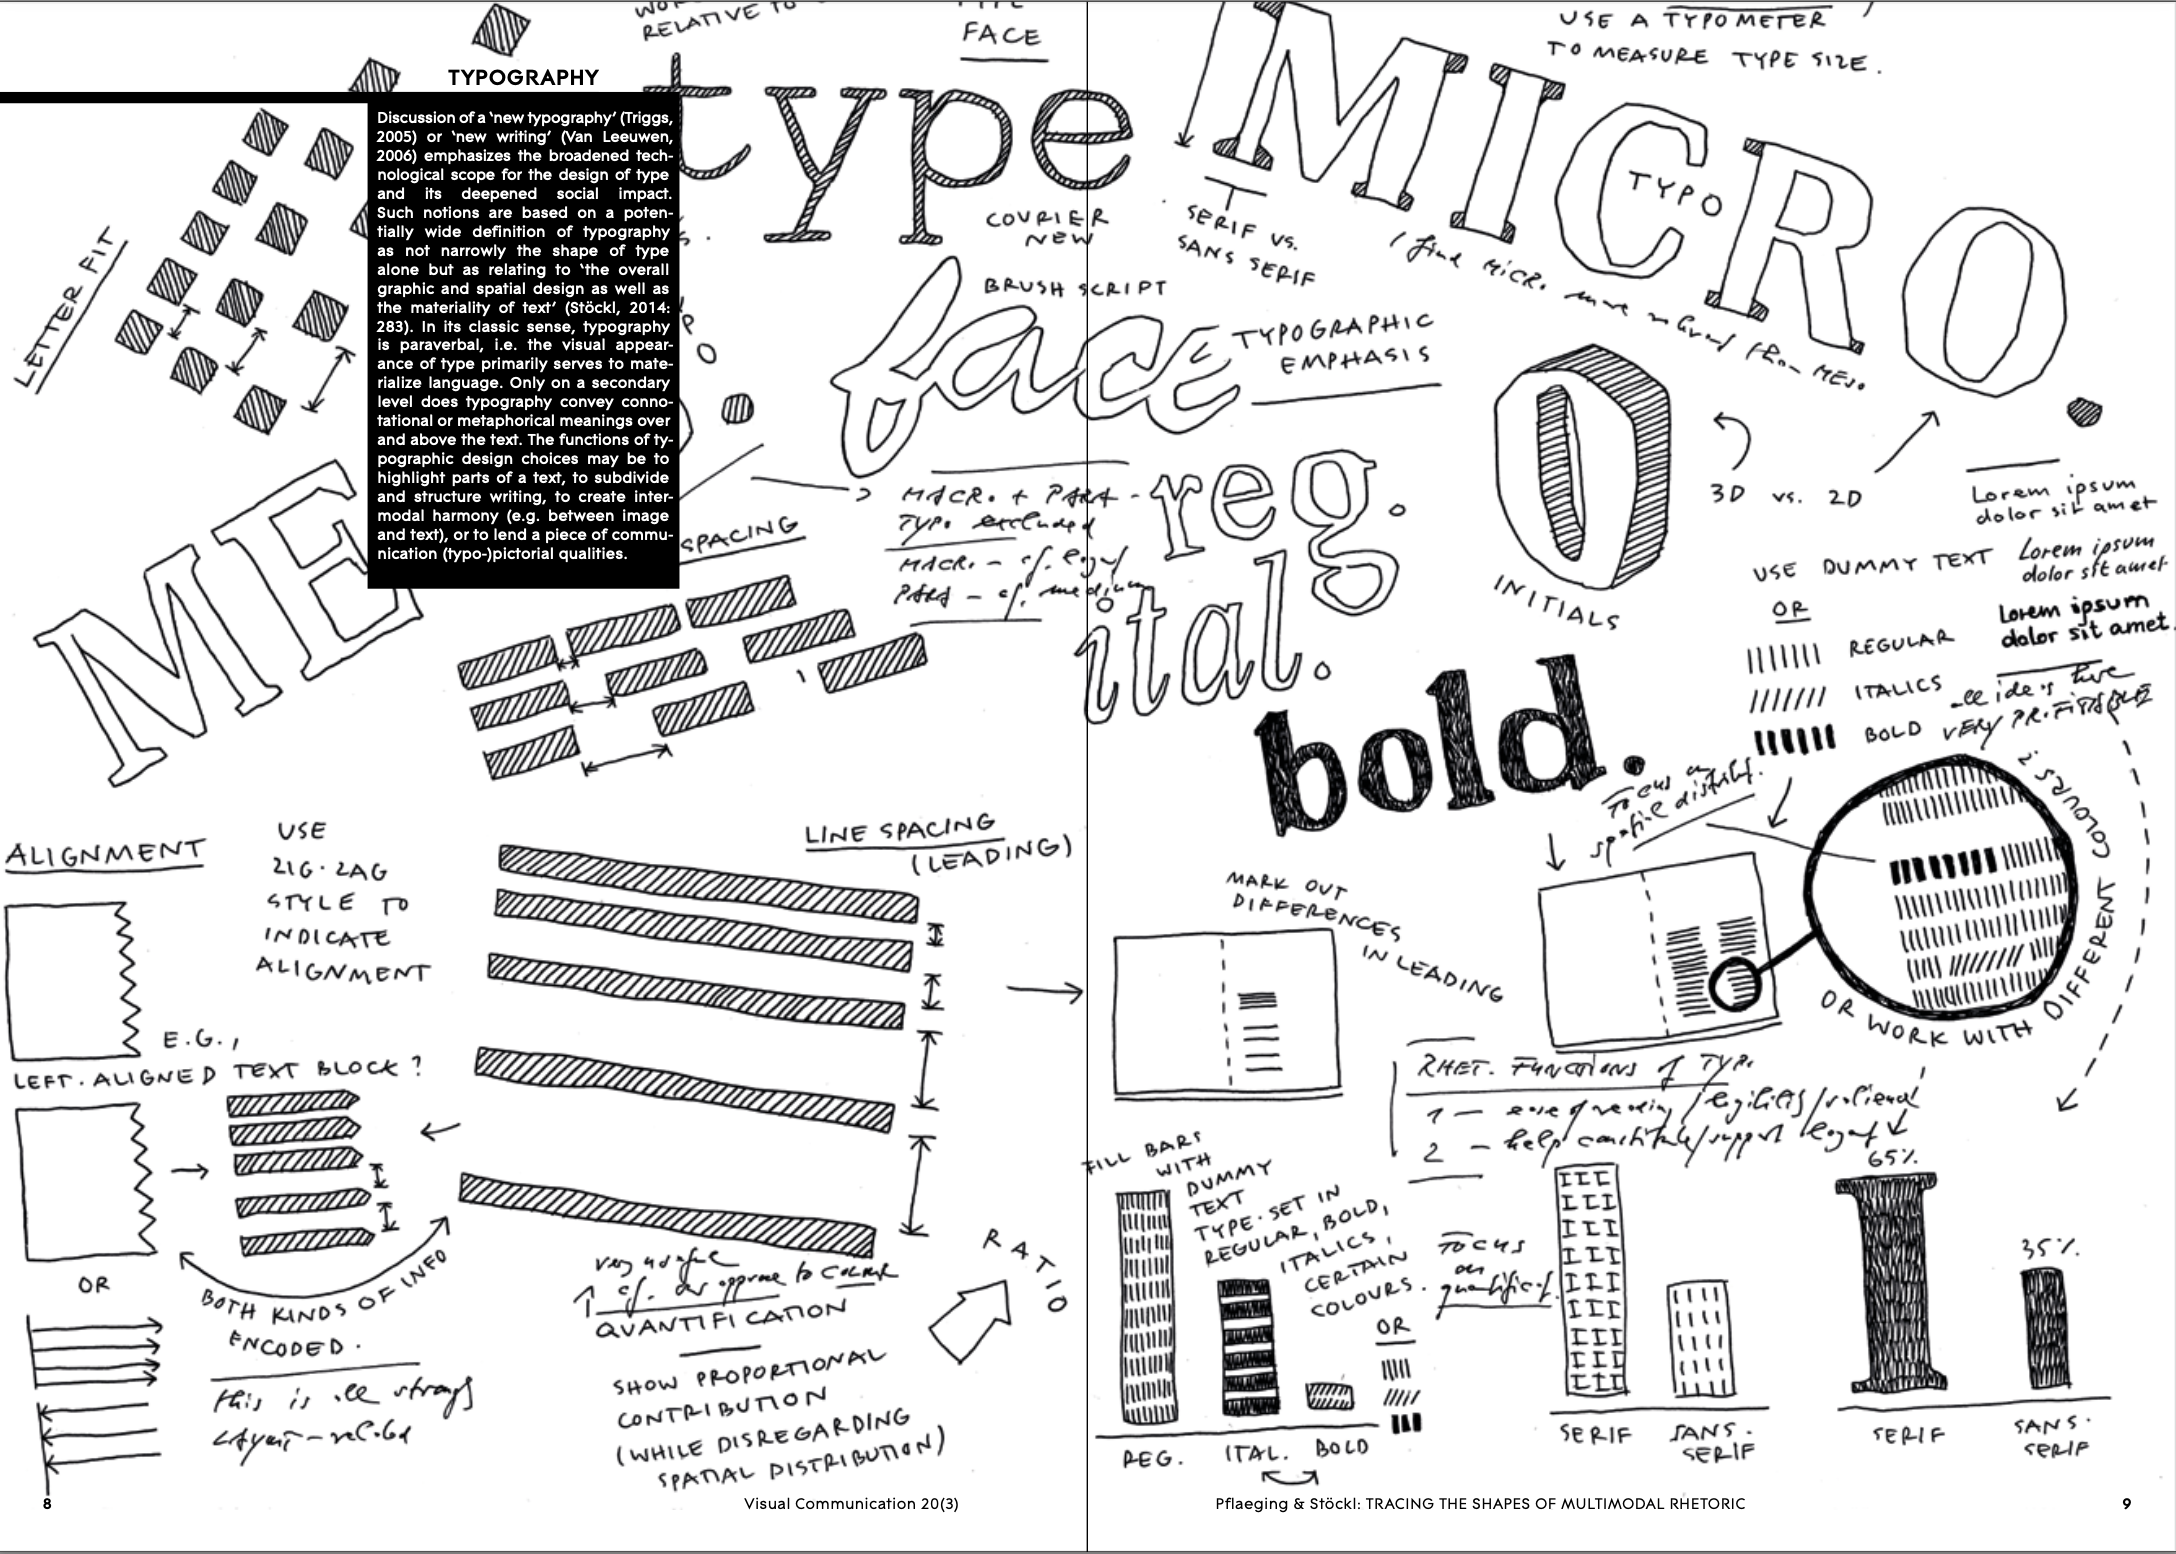 RELATIVE TO
FACE
USE A TYPOMETER
TO MEASURE TYPE SIZE.
TYPOGRAPHY
Discussion of a 'new typography' (Triggs,
2005) or 'new writing' (Van Leeuwen,
2006) emphasizes the broadened tech-
nological scope for the design of type
and its deepened social impact.
Such notions are based on a poten-
tially wide definition of typography
as not narrowly the shape of type
alone but as relating to 'the overall
graphic and spatial design as well as
the materiality of text' (Stöckl, 2014:
283). In its classic sense, typography
is paraverbal, i.e. the visual appear-
ance of type primarily serves to mate-
rialize language. Only on a secondary
level does typography convey conno-
tational or metaphorical meanings over
and above the text. The functions of ty-
pographic design choices may be to
highlight parts of a text, to subdivide
and structure writing, to create inter-
modal harmony (e.g. between image
and text), or to lend a piece of commu-
nication (typo-)pictorial qualities.
LETTER FIT
type
COURIER
NEW
BRUSH SCRIPT
face
TYPOGRAPHIC
EMPHASIS
ME
SPACING
MACRO + PARA-
TYPO excluded
MACRO - cf. layout
PARA - cf. medium
MICRO
TYPO
SERIF VS.
SANS SERIF
I find MICRO more relevant than MESO
reg.
ital.
bold.
O
INITIALS
3D vs. 2D
Lorem ipsum
dolor sit amet
USE DUMMY TEXT
Lorem ipsum
dolor sit amet
OR
Lorem ipsum
dolor sit amet.
REGULAR
ITALICS
BOLD
all ideas here
VERY PROFITABLE
Focus on
spatial distribut.
OR WORK WITH DIFFERENT COLOURS?
ALIGNMENT
USE
ZIG-ZAG
STYLE TO
INDICATE
ALIGNMENT
E.G.,
LEFT-ALIGNED TEXT BLOCK?
OR
BOTH KINDS OF INFO
ENCODED.
this is all strongly
LAYOUT-related
LINE SPACING
(LEADING)
MARK OUT
DIFFERENCES
IN LEADING
very useful
cf. our approach to COLOUR
QUANTIFICATION
SHOW PROPORTIONAL
CONTRIBUTION
(WHILE DISREGARDING
SPATIAL DISTRIBUTION)
RATIO
RHET. FUNCTIONS of TYPO
1 - ease of reading/legibility/salience
2 - help constitute/support layout
FILL BARS
WITH
DUMMY
TEXT
TYPE-SET IN
REGULAR, BOLD,
ITALICS,
CERTAIN
COLOURS.
OR
Focus
on
quantificat.
REG.
ITAL.
BOLD
SERIF
SANS-
SERIF
65%
35%
SERIF
SANS-
SERIF
8
Visual Communication 20(3)
Pflaeging & Stöckl: TRACING THE SHAPES OF MULTIMODAL RHETORIC
9